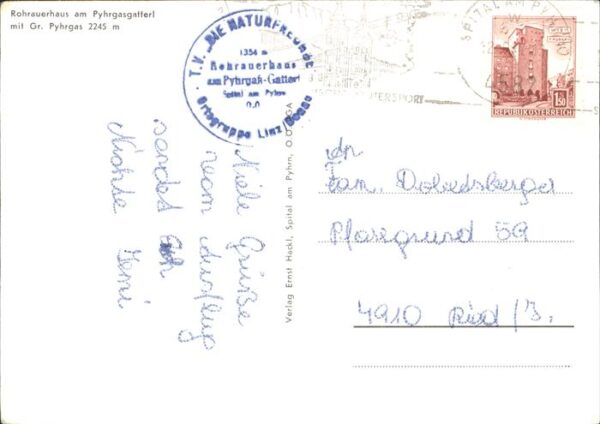 Rohrauerhaus am Pyhrgasgatterl
mit Gr. Pyhrgas 2245 m
T.V. „DIE NATURFREUNDE
1354 m
Rohrauerhaus
am Pyhrgaß-Gatterl
Spital am Pyhrn
O.Ö.
Ortsgruppe Linz/Donau
SPITAL AM PYHRN
4582
REPUBLIK ÖSTERREICH
1.50
Viele Grüße
vom Ausflug
sendet Euch
Nichte
Verlag Ernst Hackl, Spital am Pyhrn, O.Ö.
An
Fam.
Pfarrgrund 59
4910 Ried/I.